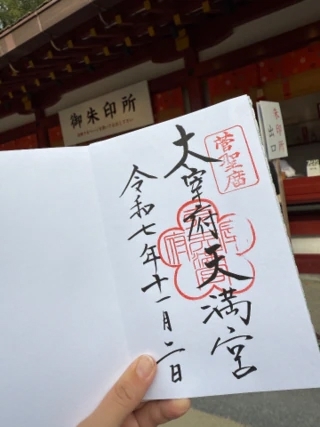 御朱印所
朱印所
出口
菅聖廟
太宰府天満宮
令和七年十一月二日